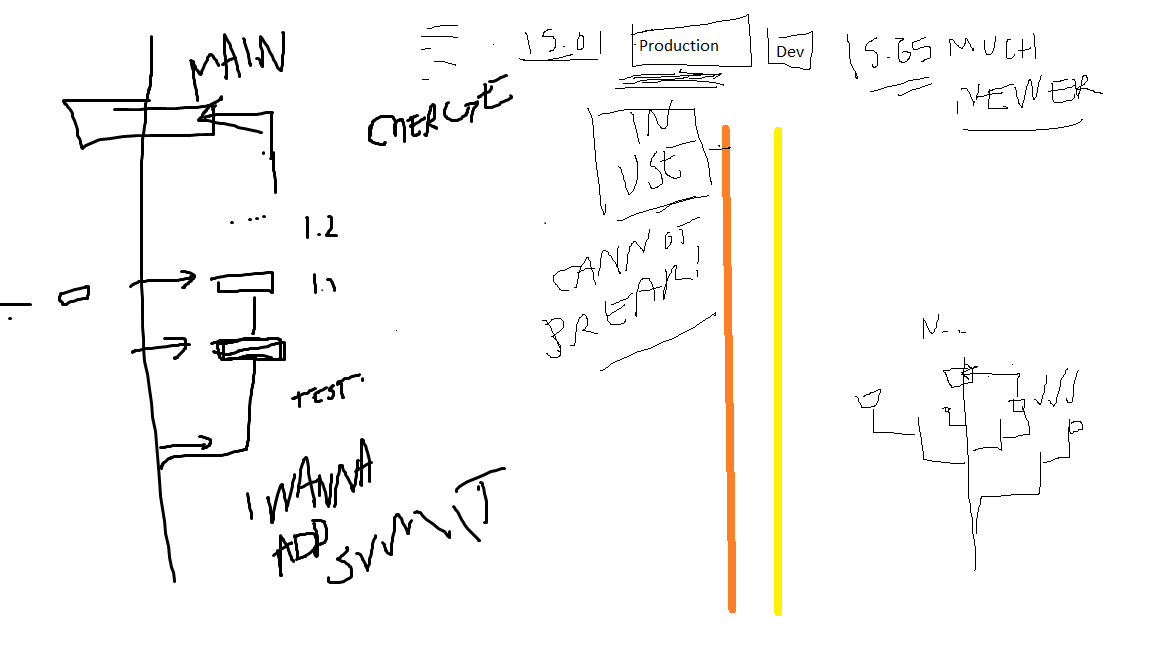 MAIN
MERGE
1.2
1.1
TEST
I WANNA
ADD
SUMMIT
15.01
Production
Dev
15.65 MUCH
NEWER
IN
USE
CANNOT
BREAK!
N...